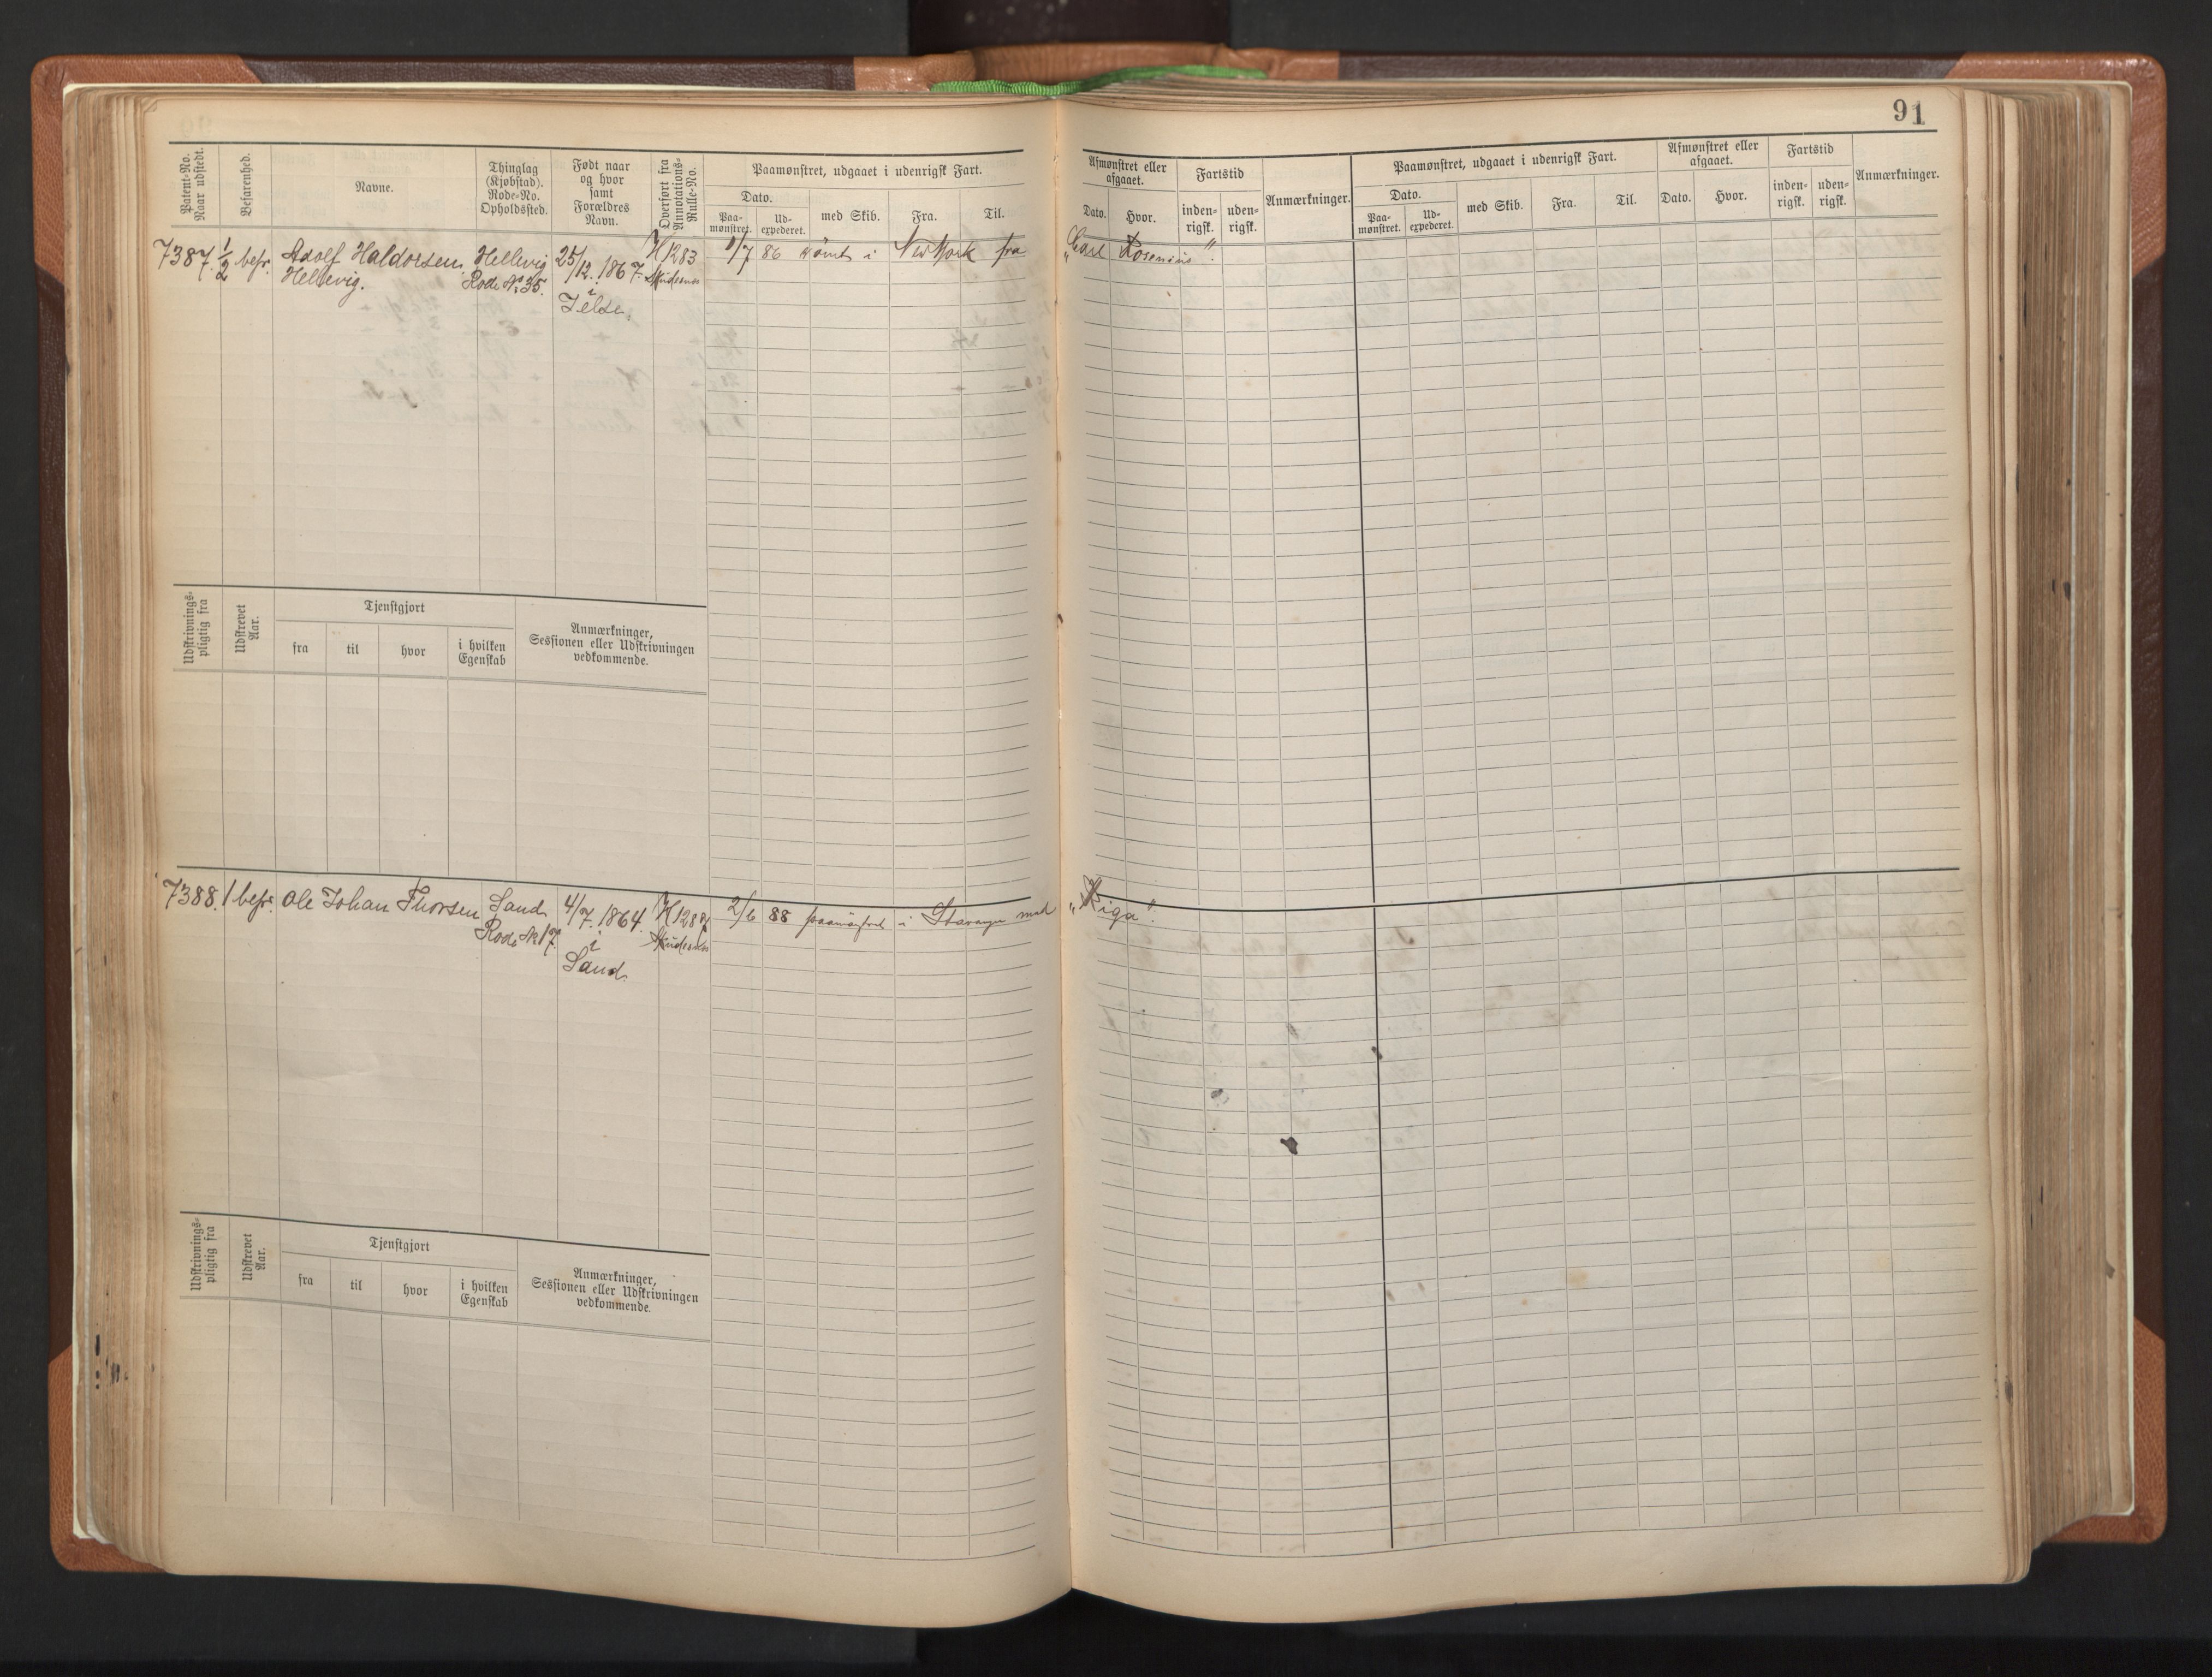 91
Patent-No. Naar udstedt.
Befarenhed.
Navne.
Thinglag (Kjøbstad). Rode-No. Opholdssted.
Født naar og hvor samt Forældres Navn.
Overført fra Annotations-Rulle-No.
Paamønstret, udgaaet i udenrigsk Fart.
Dato.
Paa-mønstret.
Ud-expederet.
med Skib.
Fra.
Til.
Afmønstret eller afgaaet.
Dato.
Hvor.
Fartstid
inden-rigsk.
uden-rigsk.
Anmærkninger.
Paamønstret, udgaaet i udenrigsk Fart.
Dato.
Paa-mønstret.
Ud-expederet.
med Skib.
Fra.
Til.
Afmønstret eller afgaaet.
Dato.
Hvor.
Fartstid
inden-rigsk.
uden-rigsk.
Anmærkninger.
7387. 1/2 befr. Adolf Haldorsen Hellevig 25/12. 1867. H 1283 1/7 86 rømt i New York fra „Carl Rosenius".
Hellevig. Rode No 35. i
Jelse.
Udskrivnings-pligtig fra
Udskrevet Aar.
Tjenstgjort
fra
til
hvor
i hvilken Egenskab
Anmærkninger, Sessionen eller Udskrivningen vedkommende.
7388. 1 befr. Ole Johan Thorsen Sand 4/7. 1864. H 1287 2/6 88 paamønstret i Stavanger med „Riga".
Rode No 17. i
Sand.
Udskrivnings-pligtig fra
Udskrevet Aar.
Tjenstgjort
fra
til
hvor
i hvilken Egenskab
Anmærkninger, Sessionen eller Udskrivningen vedkommende.